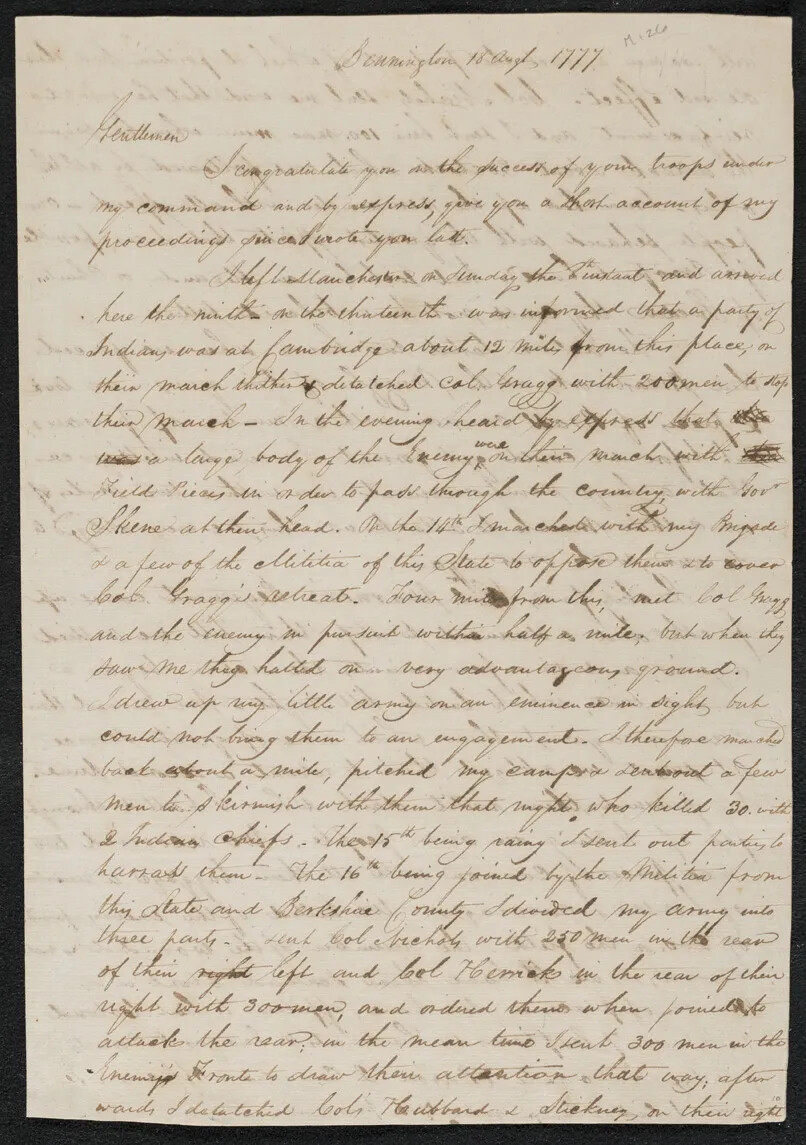 M.126
Bennington 18 Augt 1777.
Gentlemen
I congratulate you on the success of your troops under
my command and by express, give you a short account of my
proceedings since I wrote you last.
I left Manchester on Sunday the instant and arrived
here the ninth - on the thirteenth - was informed that a party of
Indians was at Cambridge about 12 miles from this place, on
their march thither & detatched Col. Gragg with 200 men to stop
their march - In the evening heard by express that
was a large body of the Enemy were on their march with
Field Pieces in order to pass through the country, with Govr
Skene at their head. On the 14th I marched with my Brigade
& a few of the Militia of this State to oppose them & to cover
Col. Gragg's retreat. Four miles from this, met Col Gragg
and the enemy in pursuit within half a mile; but when they
saw me they halted on very advantageous ground.
I drew up my little army on an eminence in sight, but
could not bring them to an engagement. I therefore marched
back about a mile, pitched my camp & sent out a few
men to skirmish with them that night, who killed 30. with
2 Indian chiefs. The 15th being rainy I sent out parties to
harrass them. The 16th being joined by the Militia from
this State and Berkshire County I divided my army into
three parts - sent Col Nichols with 250 men in the rear
of their right left and Col Herrick in the rear of their
right with 300 men, and ordered them when joined to
attack the rear; in the mean time I sent 300 men in the
Enemy's Front to draw their attention that way; after
wards I detatched Cols Hubbard & Stickney on their right